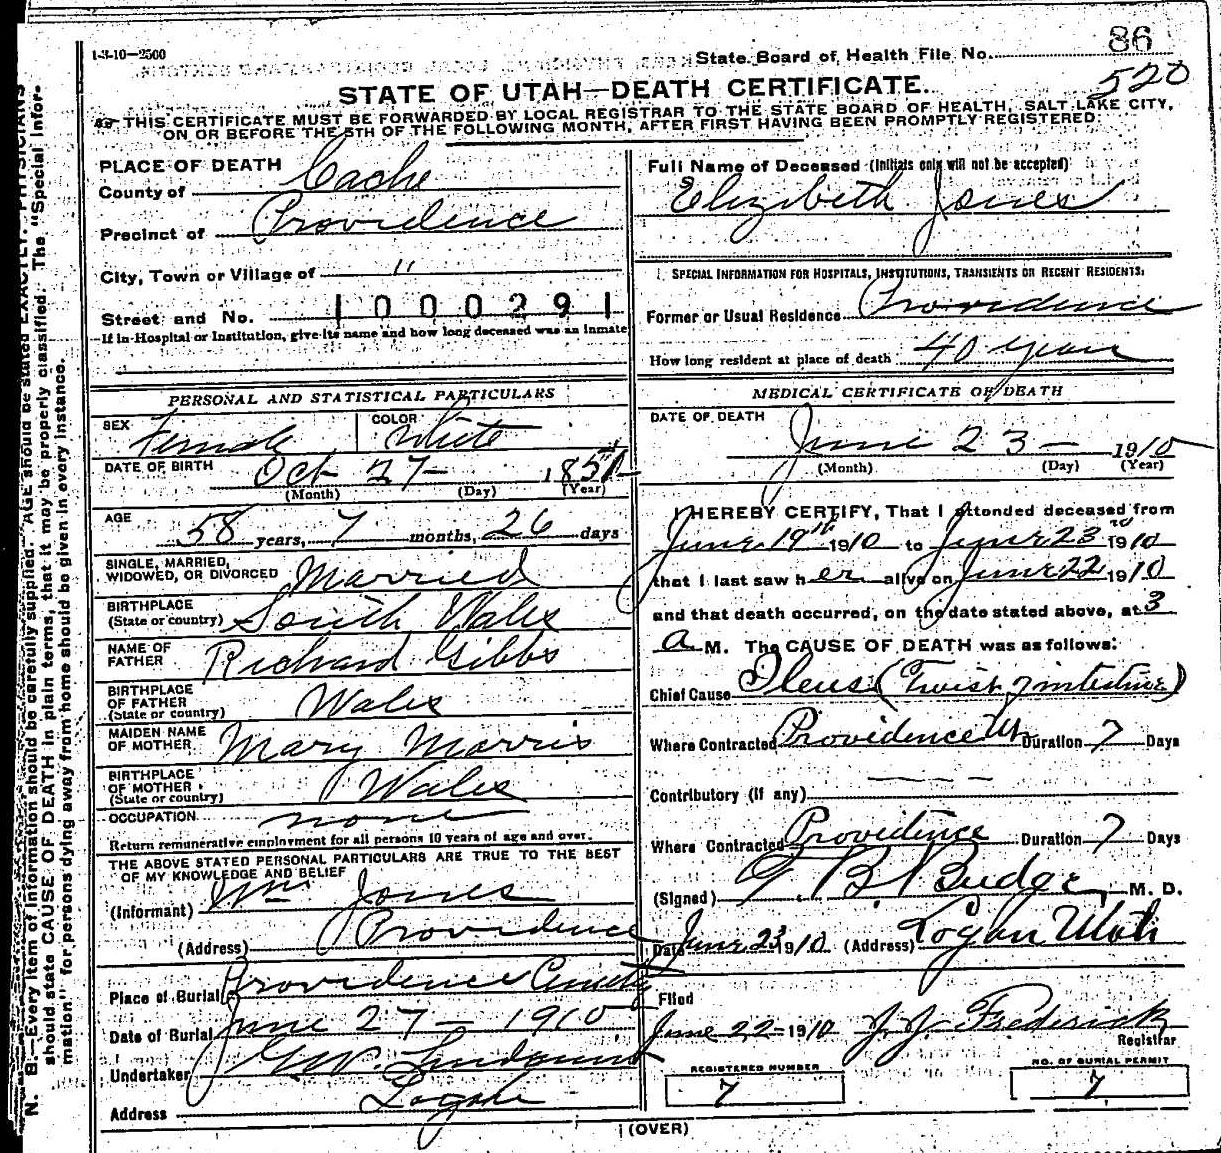 1-3-10—2500
State Board of Health File No. 86
520
STATE OF UTAH—DEATH CERTIFICATE.
THIS CERTIFICATE MUST BE FORWARDED BY LOCAL REGISTRAR TO THE STATE BOARD OF HEALTH, SALT LAKE CITY,
ON OR BEFORE THE 5TH OF THE FOLLOWING MONTH, AFTER FIRST HAVING BEEN PROMPTLY REGISTERED.
PLACE OF DEATH
County of Cache
Precinct of Providence
City, Town or Village of "
Street and No. 1000291
If in Hospital or Institution, give its name and how long deceased was an inmate
PERSONAL AND STATISTICAL PARTICULARS
SEX Female COLOR White
DATE OF BIRTH Oct 27 — 1851
(Month) (Day) (Year)
AGE 58 years, 7 months, 26 days
SINGLE, MARRIED,
WIDOWED, OR DIVORCED Married
BIRTHPLACE
(State or country) South Wales
NAME OF
FATHER Richard Gibbs
BIRTHPLACE
OF FATHER
(State or country) Wales
MAIDEN NAME
OF MOTHER Mary Morris
BIRTHPLACE
OF MOTHER
(State or country) Wales
OCCUPATION none
Return remunerative employment for all persons 10 years of age and over.
THE ABOVE STATED PERSONAL PARTICULARS ARE TRUE TO THE BEST
OF MY KNOWLEDGE AND BELIEF
(Informant) Wm Jones
(Address) Providence
Place of Burial Providence
Date of Burial June 27 — 1910
Undertaker
Address Logan
Full Name of Deceased (Initials only will not be accepted)
Elizibeth Jones
SPECIAL INFORMATION FOR HOSPITALS, INSTITUTIONS, TRANSIENTS OR RECENT RESIDENTS:
Former or Usual Residence Providence
How long resident at place of death 40 years
MEDICAL CERTIFICATE OF DEATH
DATE OF DEATH
June 23 — 1910
(Month) (Day) (Year)
I HEREBY CERTIFY, That I attended deceased from
June 19th 1910 to June 23rd 1910
that I last saw her alive on June 22 1910
and that death occurred, on the date stated above, at 3
a M. The CAUSE OF DEATH was as follows:
Chief Cause Ileus (Twist of intestine)
Where Contracted Providence Ut Duration 7 Days
Contributory (if any) — — —
Where Contracted Providence Duration 7 Days
(Signed) T. B. Budge M. D.
Date June 23 1910 (Address) Logan Utah
Filed
June 22 — 1910 J. J. Frederick
Registrar
REGISTERED NUMBER
7
NO. OF BURIAL PERMIT
7
(OVER)
N. B.—Every item of information should be carefully supplied. AGE should be stated EXACTLY. PHYSICIANS
should state CAUSE OF DEATH in plain terms, that it may be properly classified. The "Special Infor-
mation" for persons dying away from home should be given in every instance.